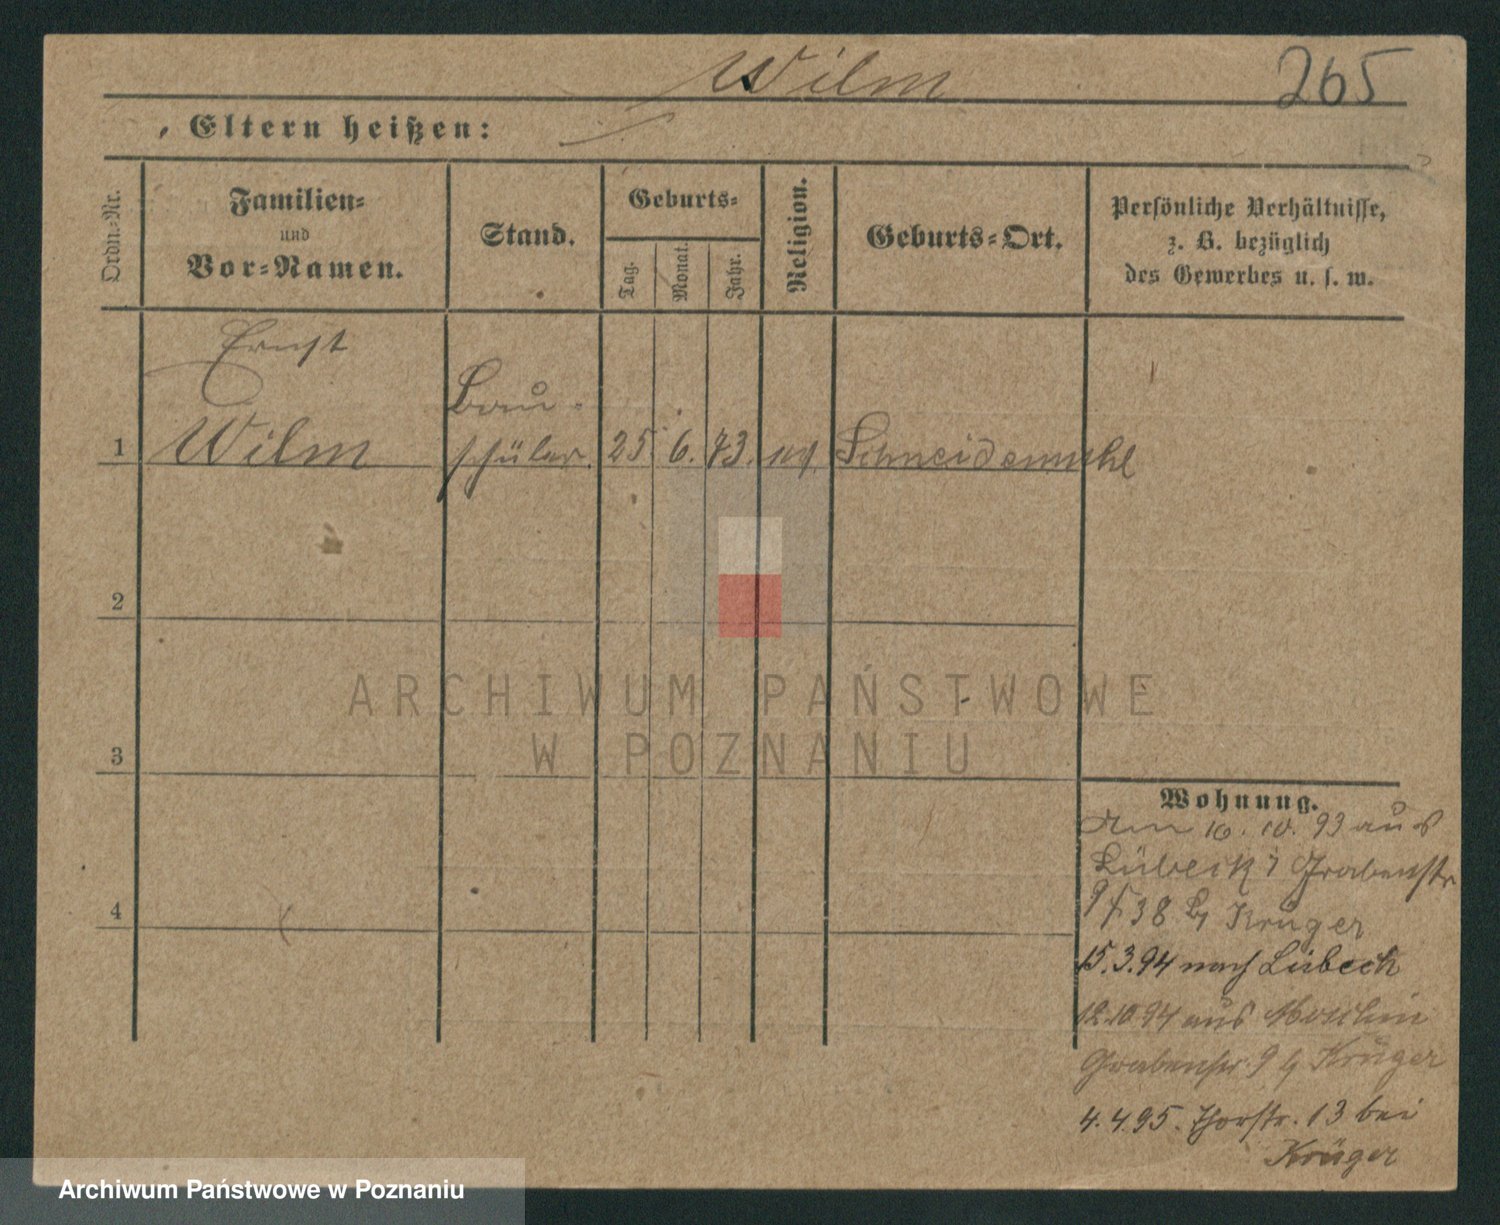 Wilm
265
, Eltern heißen:
Ordn.-Nr.
Familien-
und
Vor-Namen.
Stand.
Geburts-
Tag.
Monat.
Jahr.
Religion.
Geburts-Ort.
Persönliche Verhältnisse,
z. B. bezüglich
des Gewerbes u. s. w.
Ernst
Bau-
1 Wilm schüler. 25 6. 73. Schneidemuhl
2
3
4
ARCHIWUM PAŃSTWOWE
W POZNANIU
Wohnung.
Am 10. 10. 93 aus
Lübeck Grabenstr
38 Krüger
15.3.94 nach Lübeck
12.10.94 aus
Grabenstr. 9 Krüger
4.4.95. Thorstr. 13 bei
Krüger
Archiwum Państwowe w Poznaniu